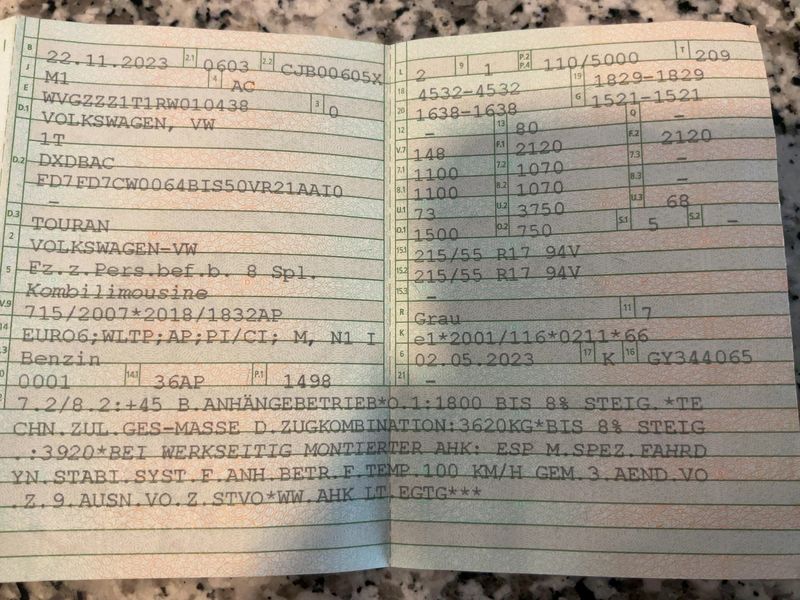 B 22.11.2023 2.1 0603 2.2 CJB00605X
J M1 4 AC
E WVGZZZ1T1RW010438 3 0
D.1 VOLKSWAGEN, VW
1T
D.2 DXDBAC
FD7FD7CW0064BIS50VR21AAI0
-
D.3 TOURAN
2 VOLKSWAGEN-VW
5 Fz.z.Pers.bef.b. 8 Spl.
Kombilimousine
V.9 715/2007*2018/1832AP
14 EURO6;WLTP;AP;PI/CI; M, N1 I
P.3 Benzin
10 0001 14.1 36AP P.1 1498
L 2 9 1 P.2 P.4 110/5000 T 209
18 4532-4532 19 1829-1829
20 1638-1638 G 1521-1521
12 - 13 80 Q -
V.7 148 F.1 2120 F.2 2120
7.1 1100 7.2 1070 7.3 -
8.1 1100 8.2 1070 8.3 -
U.1 73 U.2 3750 U.3 68
O.1 1500 O.2 750 S.1 5 S.2 -
15.1 215/55 R17 94V
15.2 215/55 R17 94V
15.3 -
R Grau 11 7
K e1*2001/116*0211*66
6 02.05.2023 17 K 16 GY344065
21 -
7.2/8.2:+45 B.ANHÄNGEBETRIEB*O.1:1800 BIS 8% STEIG.*TE
CHN.ZUL.GES-MASSE D.ZUGKOMBINATION:3620KG*BIS 8% STEIG
.:3920*BEI WERKSEITIG MONTIERTER AHK: ESP M.SPEZ.FAHRD
YN.STABI.SYST.F.ANH.BETR.F TEMP.100 KM/H GEM.3.AEND.VO
.Z.9.AUSN.VO.Z.STVO*WW.AHK LT.EGTG***